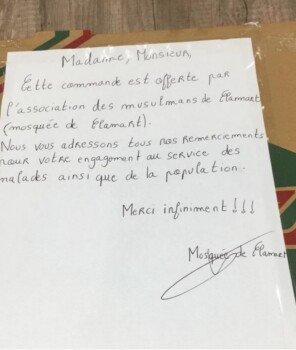 Madame, Monsieur,
Cette commande est offerte par
l'association des musulmans de Clamart
(mosquée de Clamart).
Nous vous adressons tous nos remerciements
pour votre engagement au service des
malades ainsi que de la population.
MERCI infiniment !!!
Mosquée de Clamart